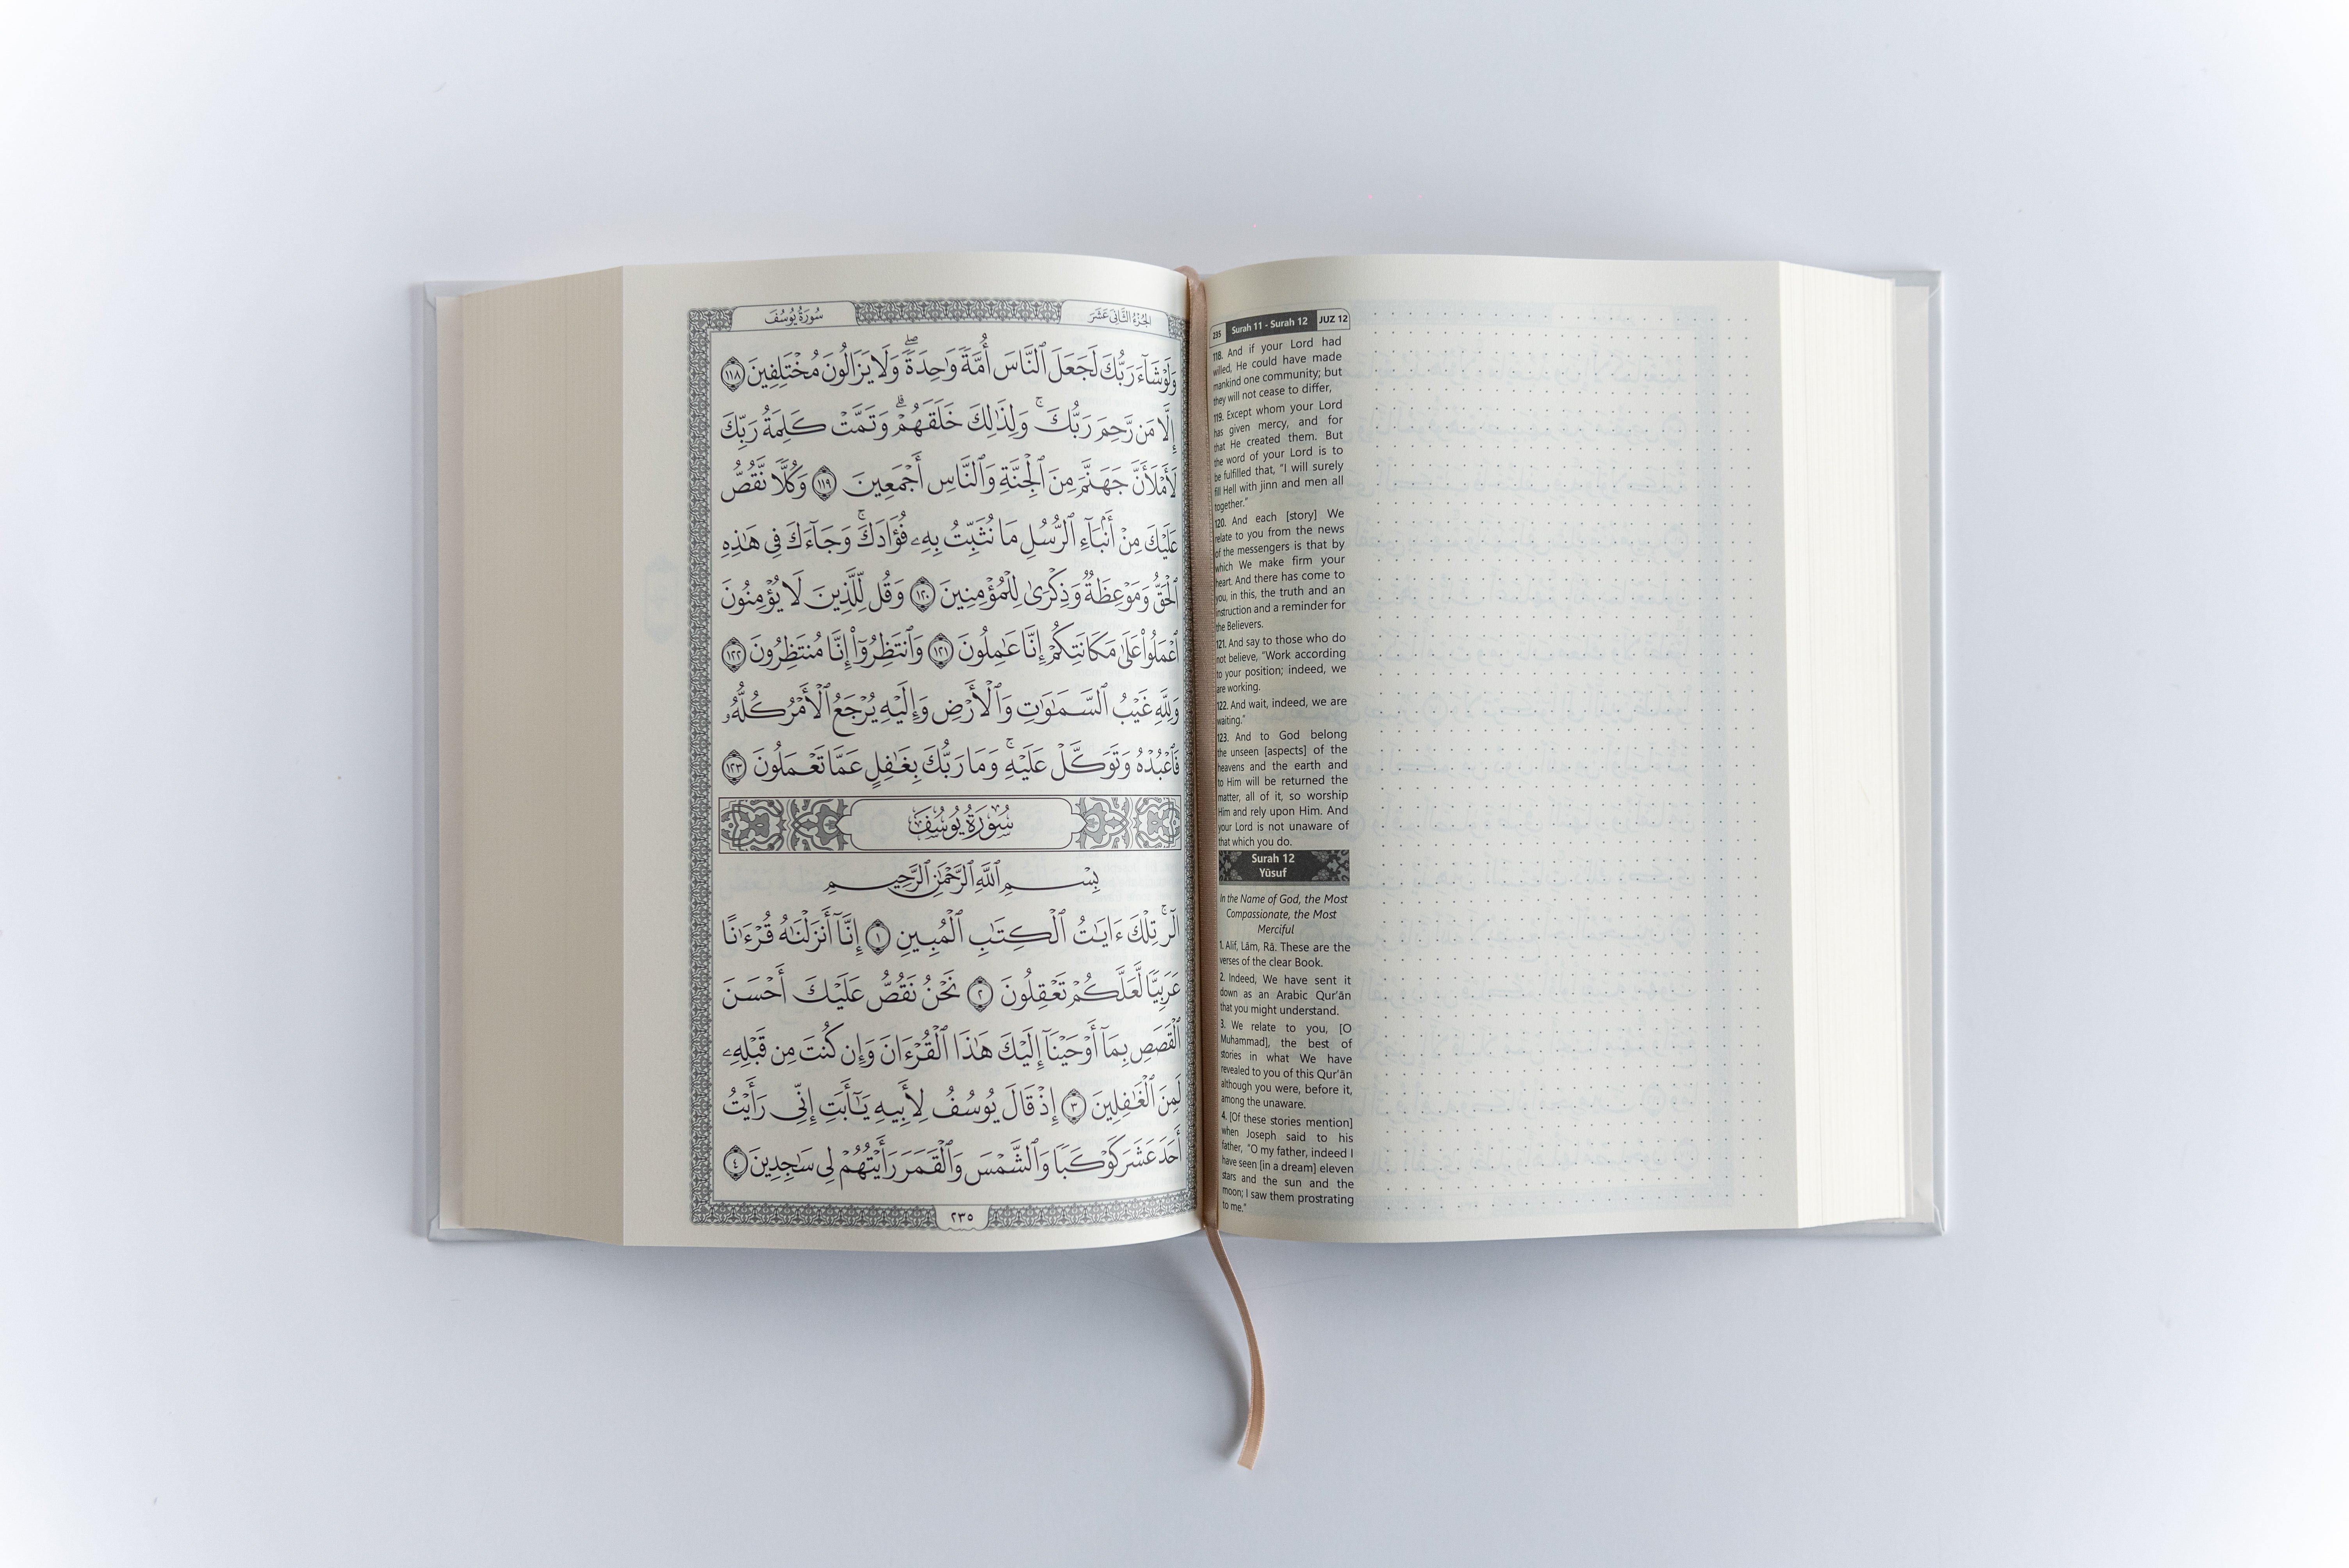 سُورَةُ يُوسُفَ
الجُزْءُ الثَّانِي عَشَرَ
وَلَوْ شَآءَ رَبُّكَ لَجَعَلَ ٱلنَّاسَ أُمَّةً وَٰحِدَةً ۖ وَلَا يَزَالُونَ مُخْتَلِفِينَ ١١٨
إِلَّا مَن رَّحِمَ رَبُّكَ ۚ وَلِذَٰلِكَ خَلَقَهُمْ ۗ وَتَمَّتْ كَلِمَةُ رَبِّكَ
لَأَمْلَأَنَّ جَهَنَّمَ مِنَ ٱلْجِنَّةِ وَٱلنَّاسِ أَجْمَعِينَ ١١٩ وَكُلًّا نَّقُصُّ
عَلَيْكَ مِنْ أَنۢبَآءِ ٱلرُّسُلِ مَا نُثَبِّتُ بِهِۦ فُؤَادَكَ ۚ وَجَآءَكَ فِى هَٰذِهِ
ٱلْحَقُّ وَمَوْعِظَةٌ وَذِكْرَىٰ لِلْمُؤْمِنِينَ ١٢٠ وَقُل لِّلَّذِينَ لَا يُؤْمِنُونَ
ٱعْمَلُوا۟ عَلَىٰ مَكَانَتِكُمْ إِنَّا عَٰمِلُونَ ١٢١ وَٱنتَظِرُوٓا۟ إِنَّا مُنتَظِرُونَ ١٢٢
وَلِلَّهِ غَيْبُ ٱلسَّمَٰوَٰتِ وَٱلْأَرْضِ وَإِلَيْهِ يُرْجَعُ ٱلْأَمْرُ كُلُّهُۥ
فَٱعْبُدْهُ وَتَوَكَّلْ عَلَيْهِ ۚ وَمَا رَبُّكَ بِغَٰفِلٍ عَمَّا تَعْمَلُونَ ١٢٣
سُورَةُ يُوسُفَ
بِسْمِ ٱللَّهِ ٱلرَّحْمَٰنِ ٱلرَّحِيمِ
الٓر ۚ تِلْكَ ءَايَٰتُ ٱلْكِتَٰبِ ٱلْمُبِينِ ١ إِنَّآ أَنزَلْنَٰهُ قُرْءَٰنًا
عَرَبِيًّا لَّعَلَّكُمْ تَعْقِلُونَ ٢ نَحْنُ نَقُصُّ عَلَيْكَ أَحْسَنَ
ٱلْقَصَصِ بِمَآ أَوْحَيْنَآ إِلَيْكَ هَٰذَا ٱلْقُرْءَانَ وَإِن كُنتَ مِن قَبْلِهِۦ
لَمِنَ ٱلْغَٰفِلِينَ ٣ إِذْ قَالَ يُوسُفُ لِأَبِيهِ يَٰٓأَبَتِ إِنِّى رَأَيْتُ
أَحَدَ عَشَرَ كَوْكَبًا وَٱلشَّمْسَ وَٱلْقَمَرَ رَأَيْتُهُمْ لِى سَٰجِدِينَ ٤
٢٣٥
235 Surah 11 - Surah 12 JUZ 12
118. And if your Lord had
willed, He could have made
mankind one community; but
they will not cease to differ,
119. Except whom your Lord
has given mercy, and for
that He created them. But
the word of your Lord is to
be fulfilled that, "I will surely
fill Hell with jinn and men all
together."
120. And each [story] We
relate to you from the news
of the messengers is that by
which We make firm your
heart. And there has come to
you, in this, the truth and an
instruction and a reminder for
the Believers.
121. And say to those who do
not believe, "Work according
to your position; indeed, we
are working.
122. And wait, indeed, we are
waiting."
123. And to God belong
the unseen [aspects] of the
heavens and the earth and
to Him will be returned the
matter, all of it, so worship
Him and rely upon Him. And
your Lord is not unaware of
that which you do.
Surah 12
Yūsuf
In the Name of God, the Most
Compassionate, the Most
Merciful
1. Alif, Lām, Rā. These are the
verses of the clear Book.
2. Indeed, We have sent it
down as an Arabic Qur'ān
that you might understand.
3. We relate to you, [O
Muhammad], the best of
stories in what We have
revealed to you of this Qur'ān
although you were, before it,
among the unaware.
4. [Of these stories mention]
when Joseph said to his
father, "O my father, indeed I
have seen [in a dream] eleven
stars and the sun and the
moon; I saw them prostrating
to me."